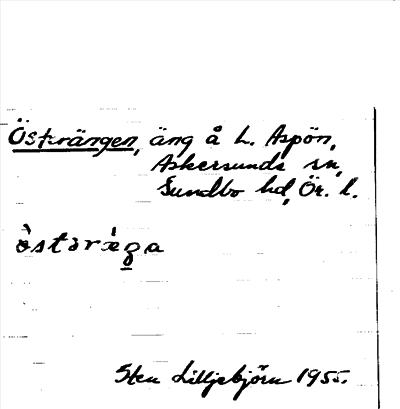 Österängen, äng å L. Aspön,
Askersunds sn,
Sundbo hd, Ör. l.
östəræ̀ŋa
Sten Lilljebjörn 1955.